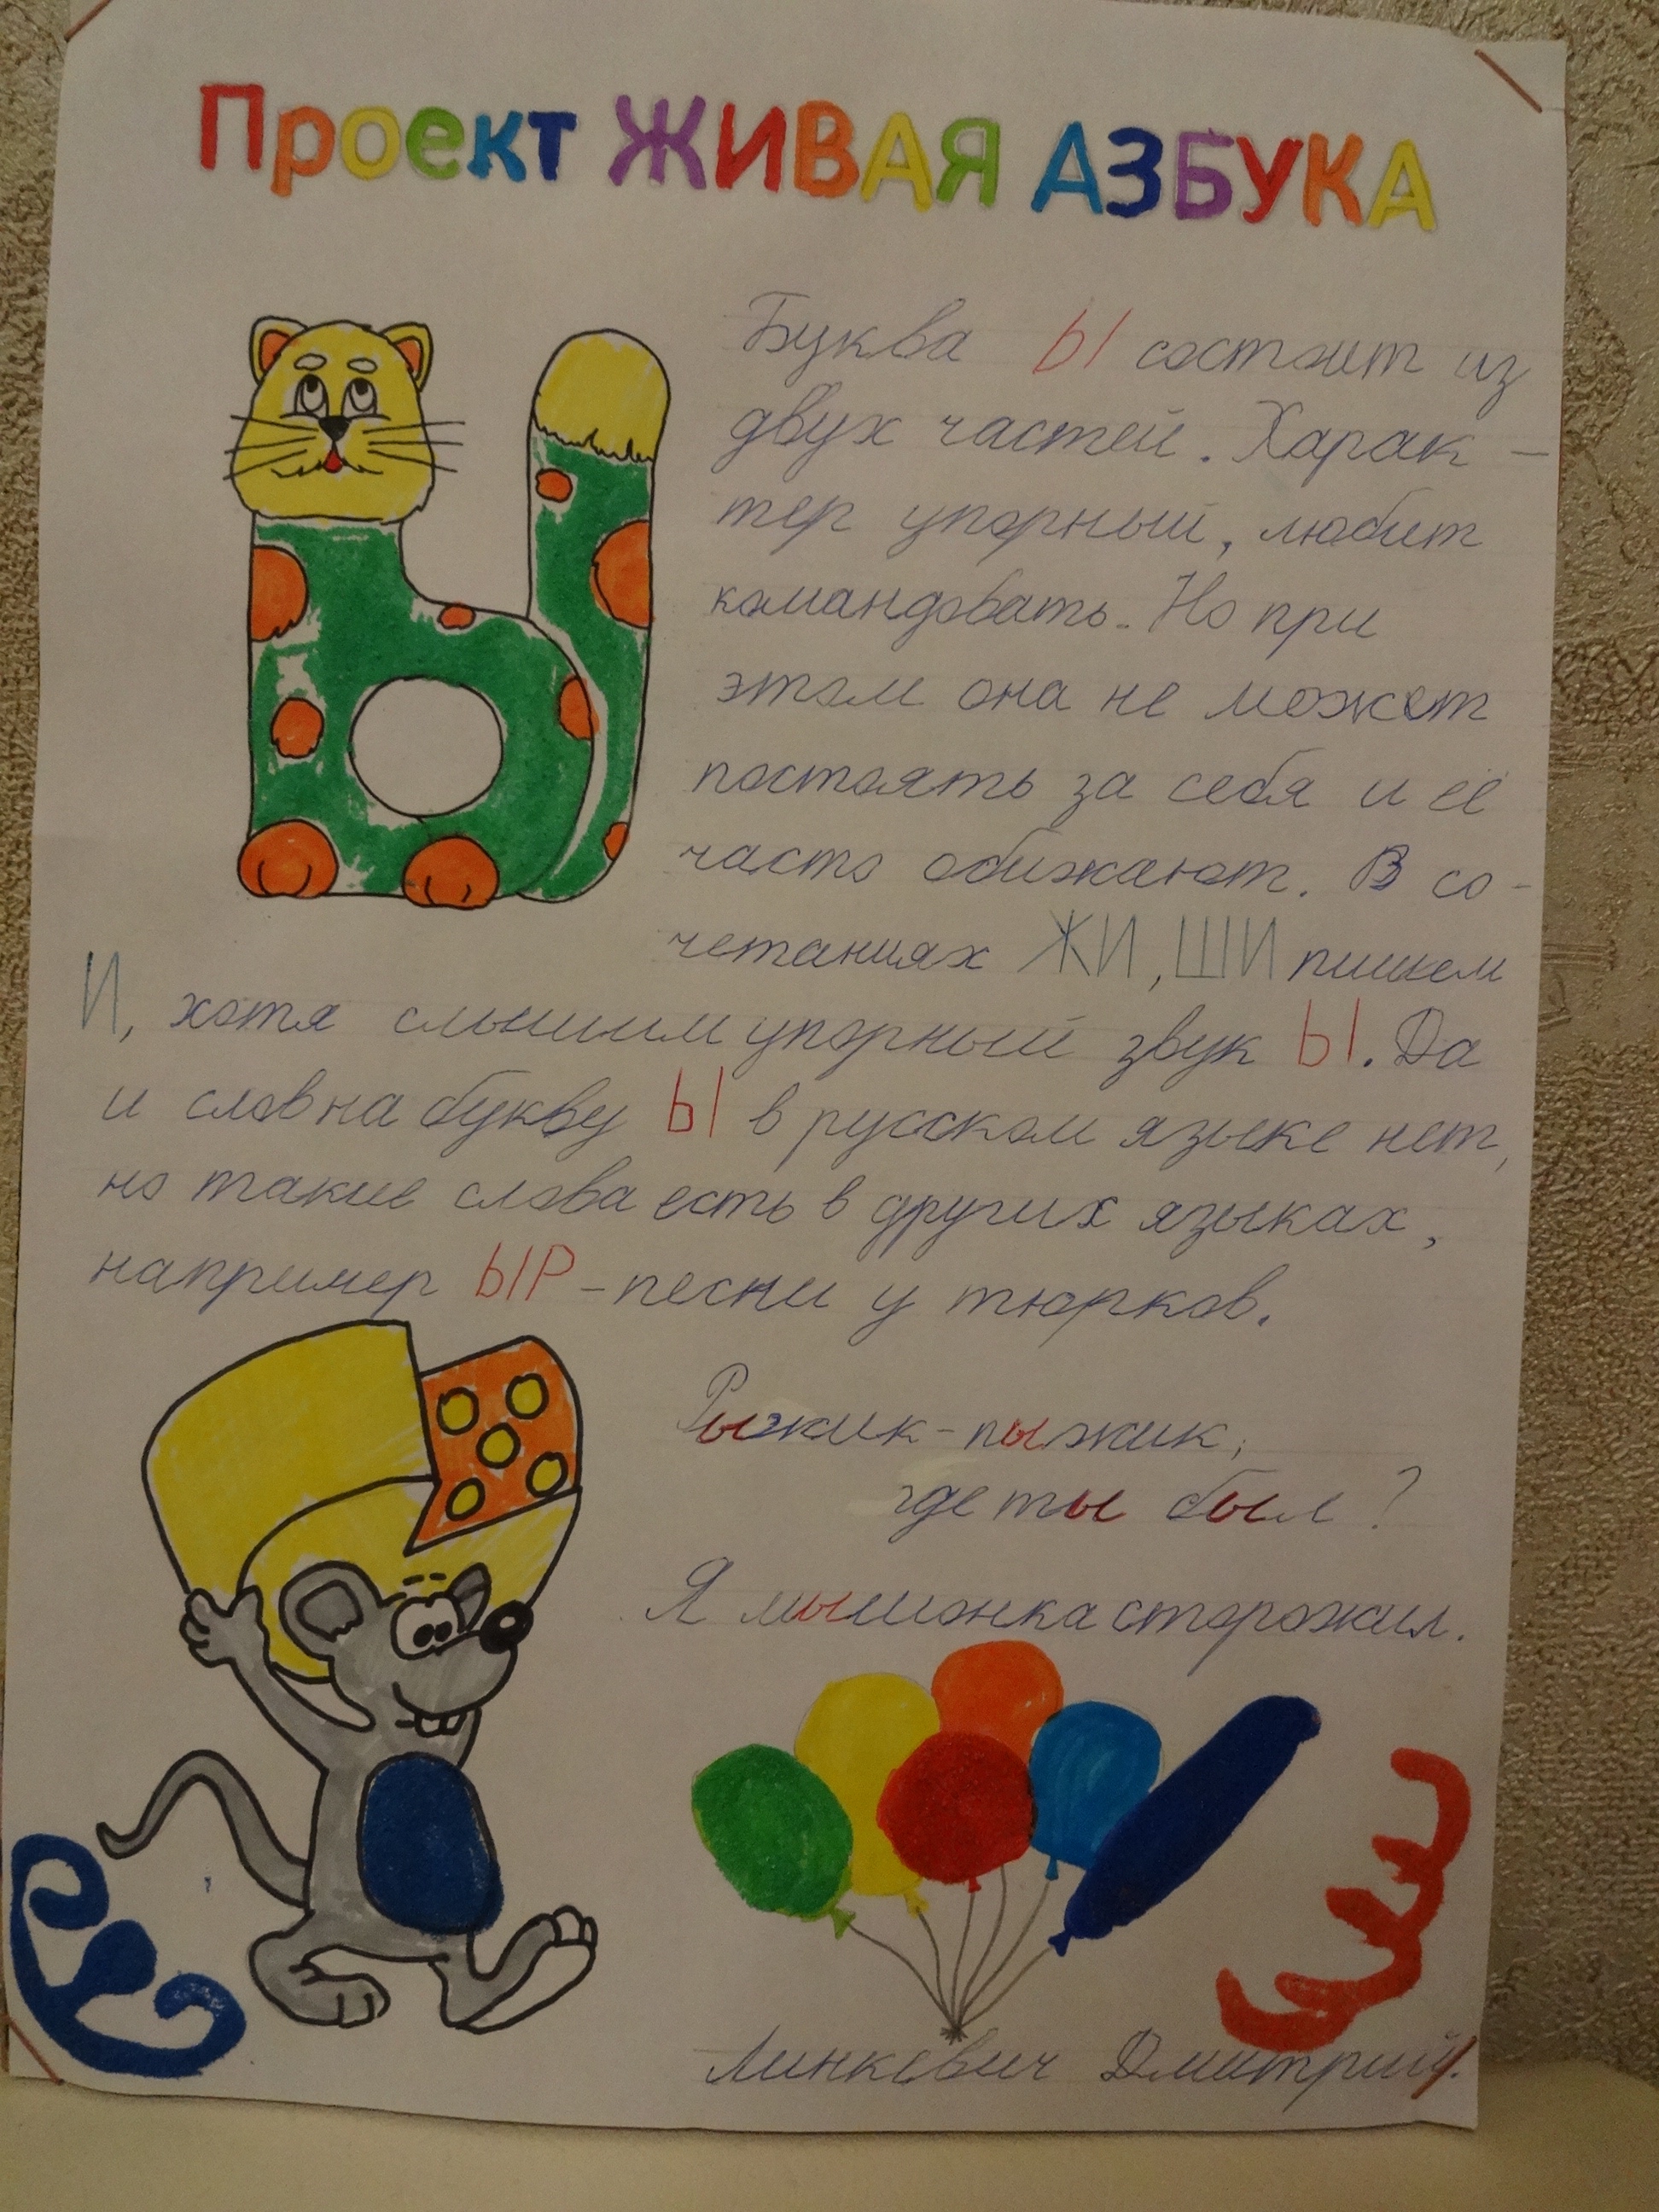 Проект ЖИВАЯ АЗБУКА
Буква Ы состоит из
двух частей. Харак-
тер упорный, любит
командовать. Но при
этом она не может
постоять за себя и её
часто обижают. В со-
четаниях ЖИ, ШИ пишем
И, хотя слышим упорный звук Ы. Да
и слов на букву Ы в русском языке нет,
но такие слова есть в других языках,
например ЫР - песни у тюрков.
Рыжик-пыжик,
где ты был?
Я мышонка сторожил.
Линкевич Дмитрий.